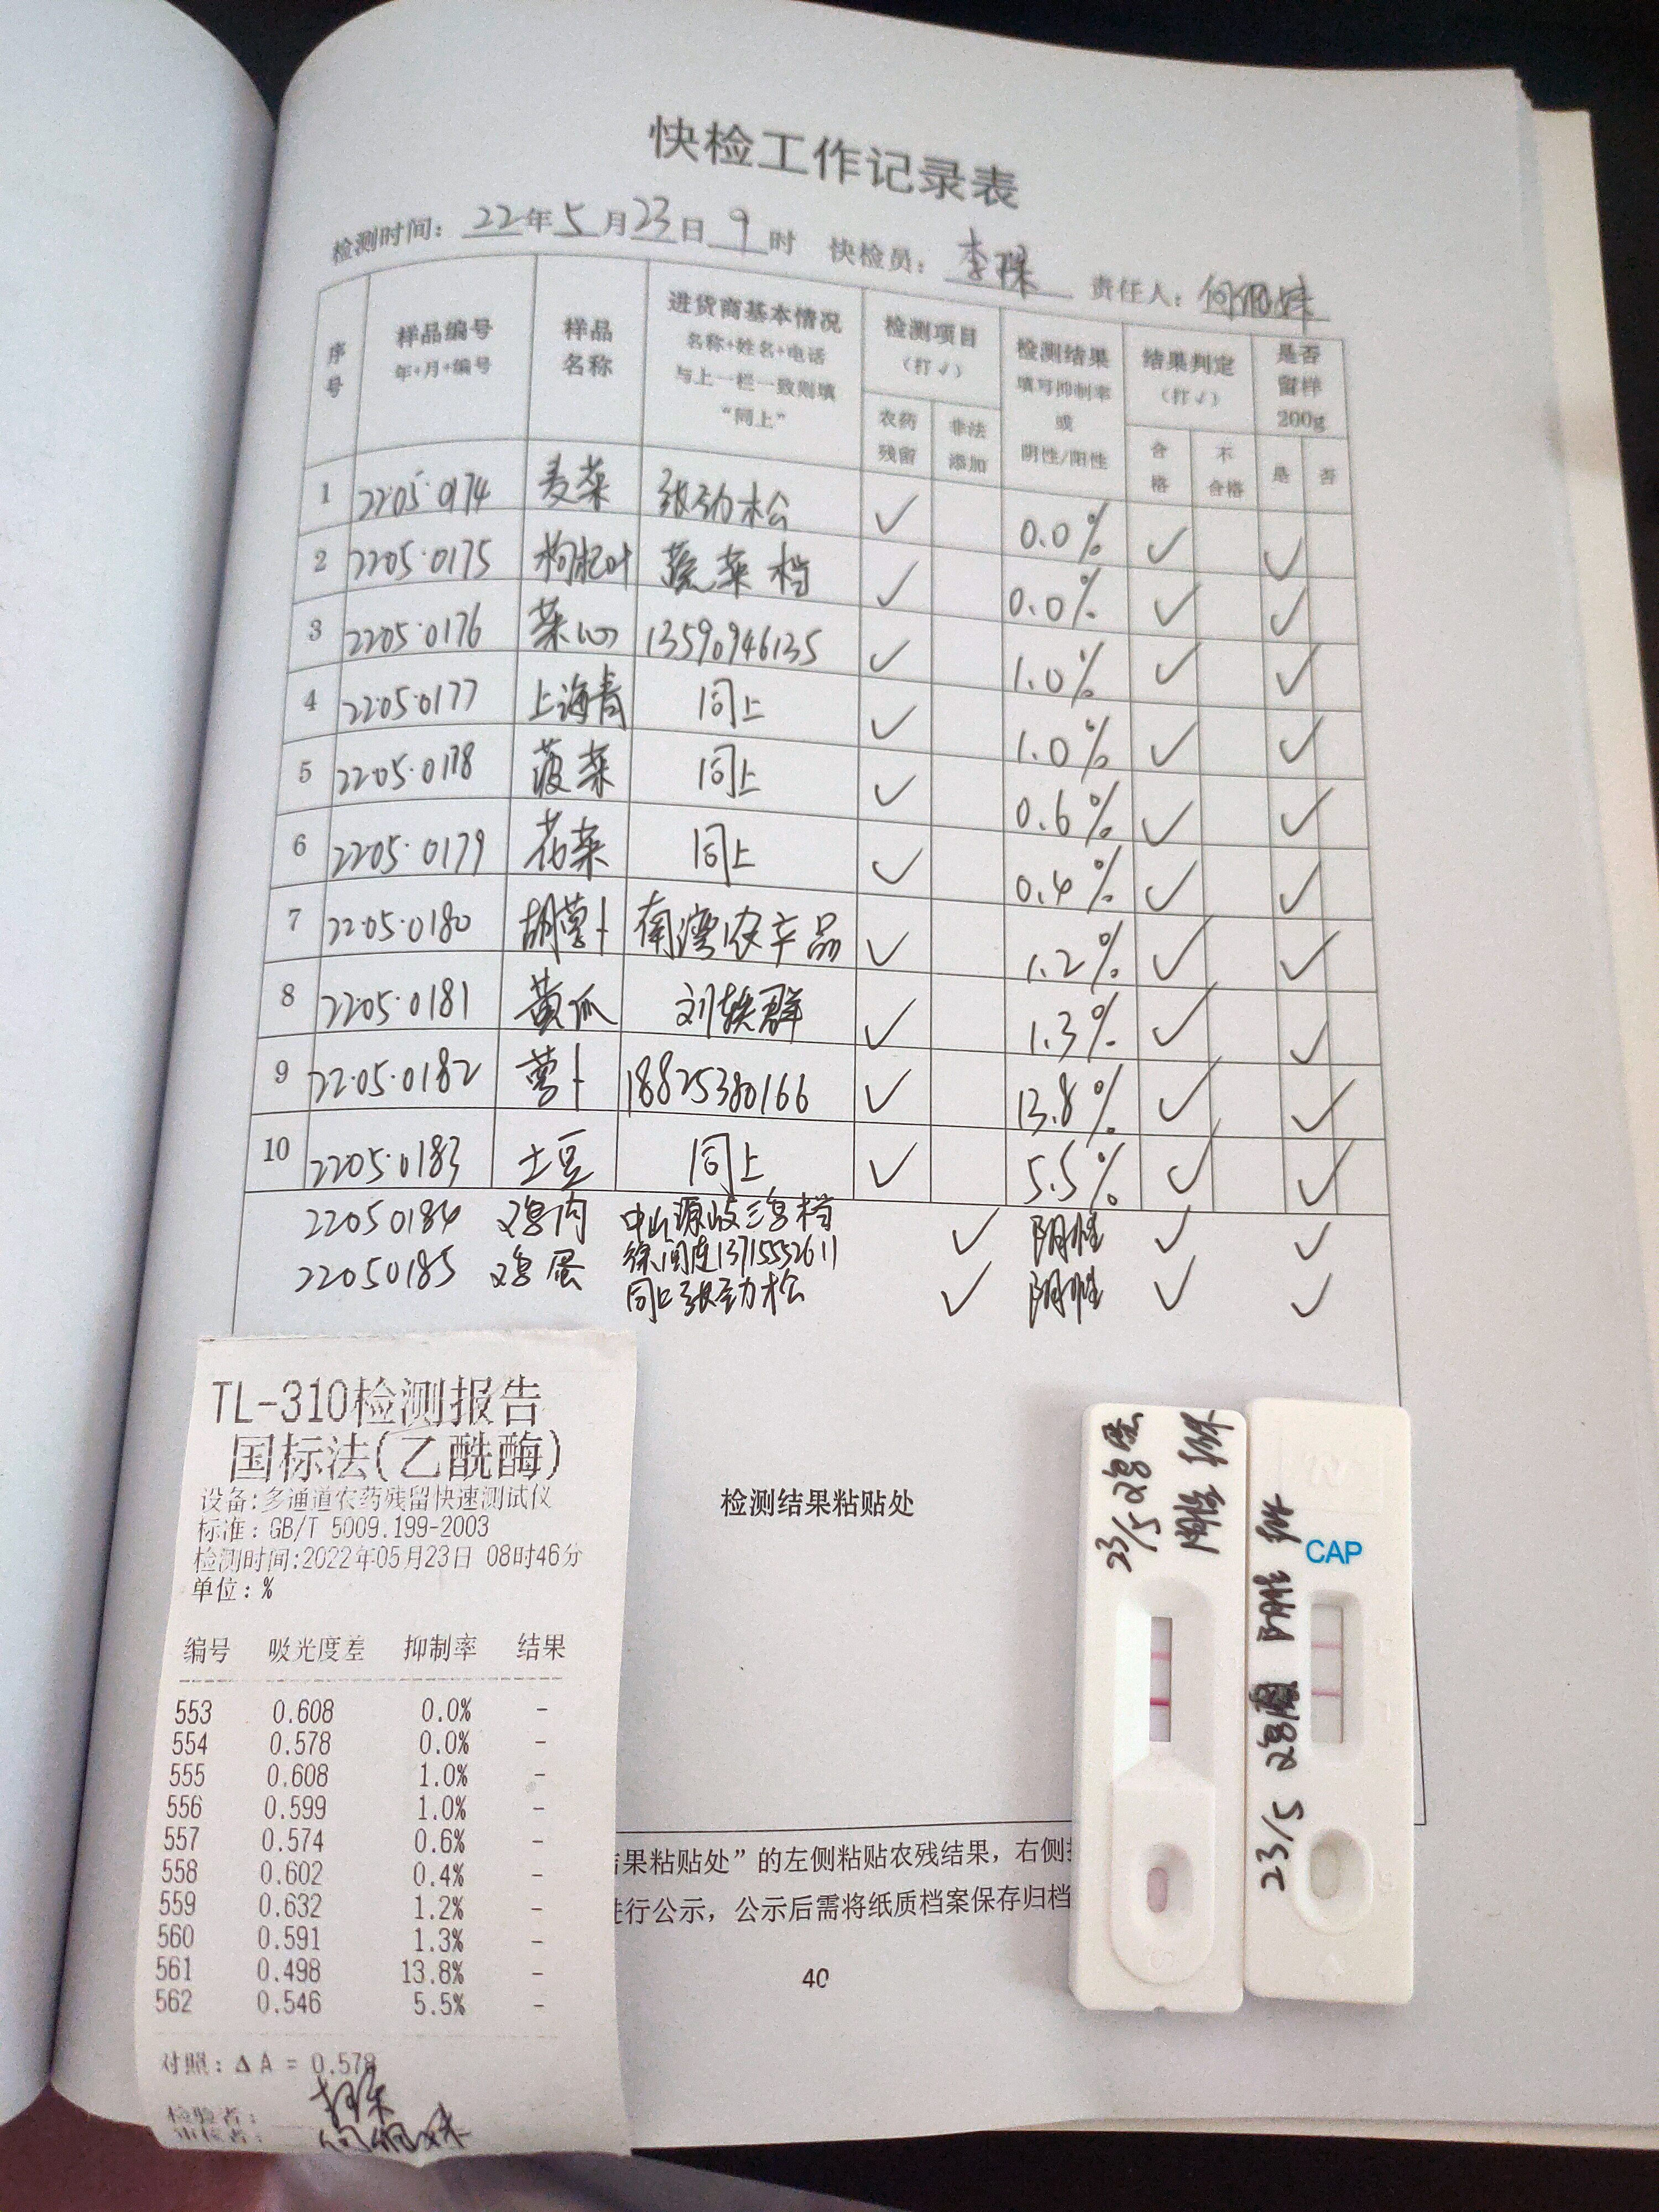 快检工作记录表
检测时间：22年5月23日9时 快检员：李 责任人：何
序号 样品编号 年+月+编号 样品名称 进货商基本情况 名称+姓名+电话 与上一栏一致则填“同上” 检测项目（打√） 农药残留 非法添加 检测结果 填写抑制率或阴性/阳性 结果判定（打√） 合格 不合格 是否留样200g 是 否
1 22·05·0174 麦菜 张劲松 ✓ 0.0% ✓ ✓
2 2205·0175 枸杞叶 蔬菜档 ✓ 0.0% ✓ ✓
3 2205·0176 菜心 13590946135 ✓ 1.0% ✓ ✓
4 22·05·0177 上海青 同上 ✓ 1.0% ✓ ✓
5 22·05·0178 菠菜 同上 ✓ 0.6% ✓ ✓
6 2205·0179 花菜 同上 ✓ 0.4% ✓ ✓
7 22·05·0180 胡萝卜 南湾农产品 ✓ 1.2% ✓ ✓
8 22·05·0181 黄瓜 刘轶群 ✓ 1.3% ✓ ✓
9 22·05·0182 萝卜 18825380166 ✓ 13.8% ✓ ✓
10 2205·0183 土豆 同上 ✓ 5.5% ✓ ✓
22050184 鸡肉 中山源歧三鸟档 ✓ 阴性 ✓ ✓
徐闰连13715552611
22050185 鸡蛋 同上张劲松 ✓ 阴性 ✓ ✓
TL-310检测报告
国标法(乙酰酶)
设备:多通道农药残留快速测试仪
标准：GB/T 5009.199-2003
检测时间:2022年05月23日 08时46分
单位：%
编号 吸光度差 抑制率 结果
553 0.608 0.0% -
554 0.578 0.0% -
555 0.608 1.0% -
556 0.599 1.0% -
557 0.574 0.6% -
558 0.602 0.4% -
559 0.632 1.2% -
560 0.591 1.3% -
561 0.498 13.8% -
562 0.546 5.5% -
对照：ΔA = 0.578
检验者：
审核者：
检测结果粘贴处
23/5 鸡蛋
阴性
CAP
23/5 鸡 阴性
果粘贴处”的左侧粘贴农残结果，右侧
进行公示，公示后需将纸质档案保存归档
40